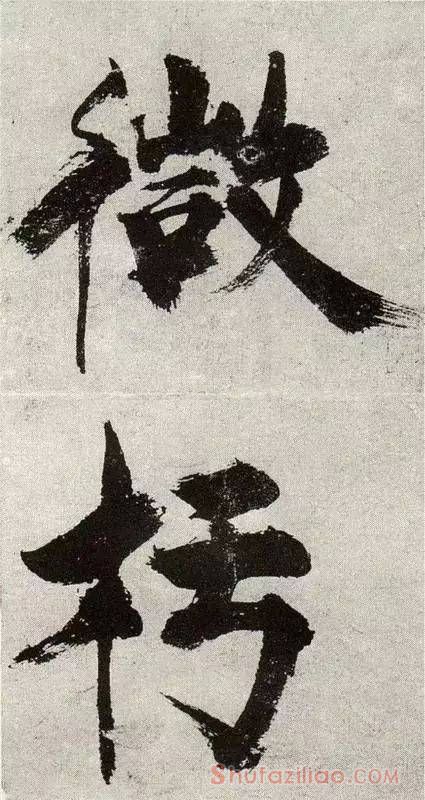 徵
杇
Shufaziliao.com